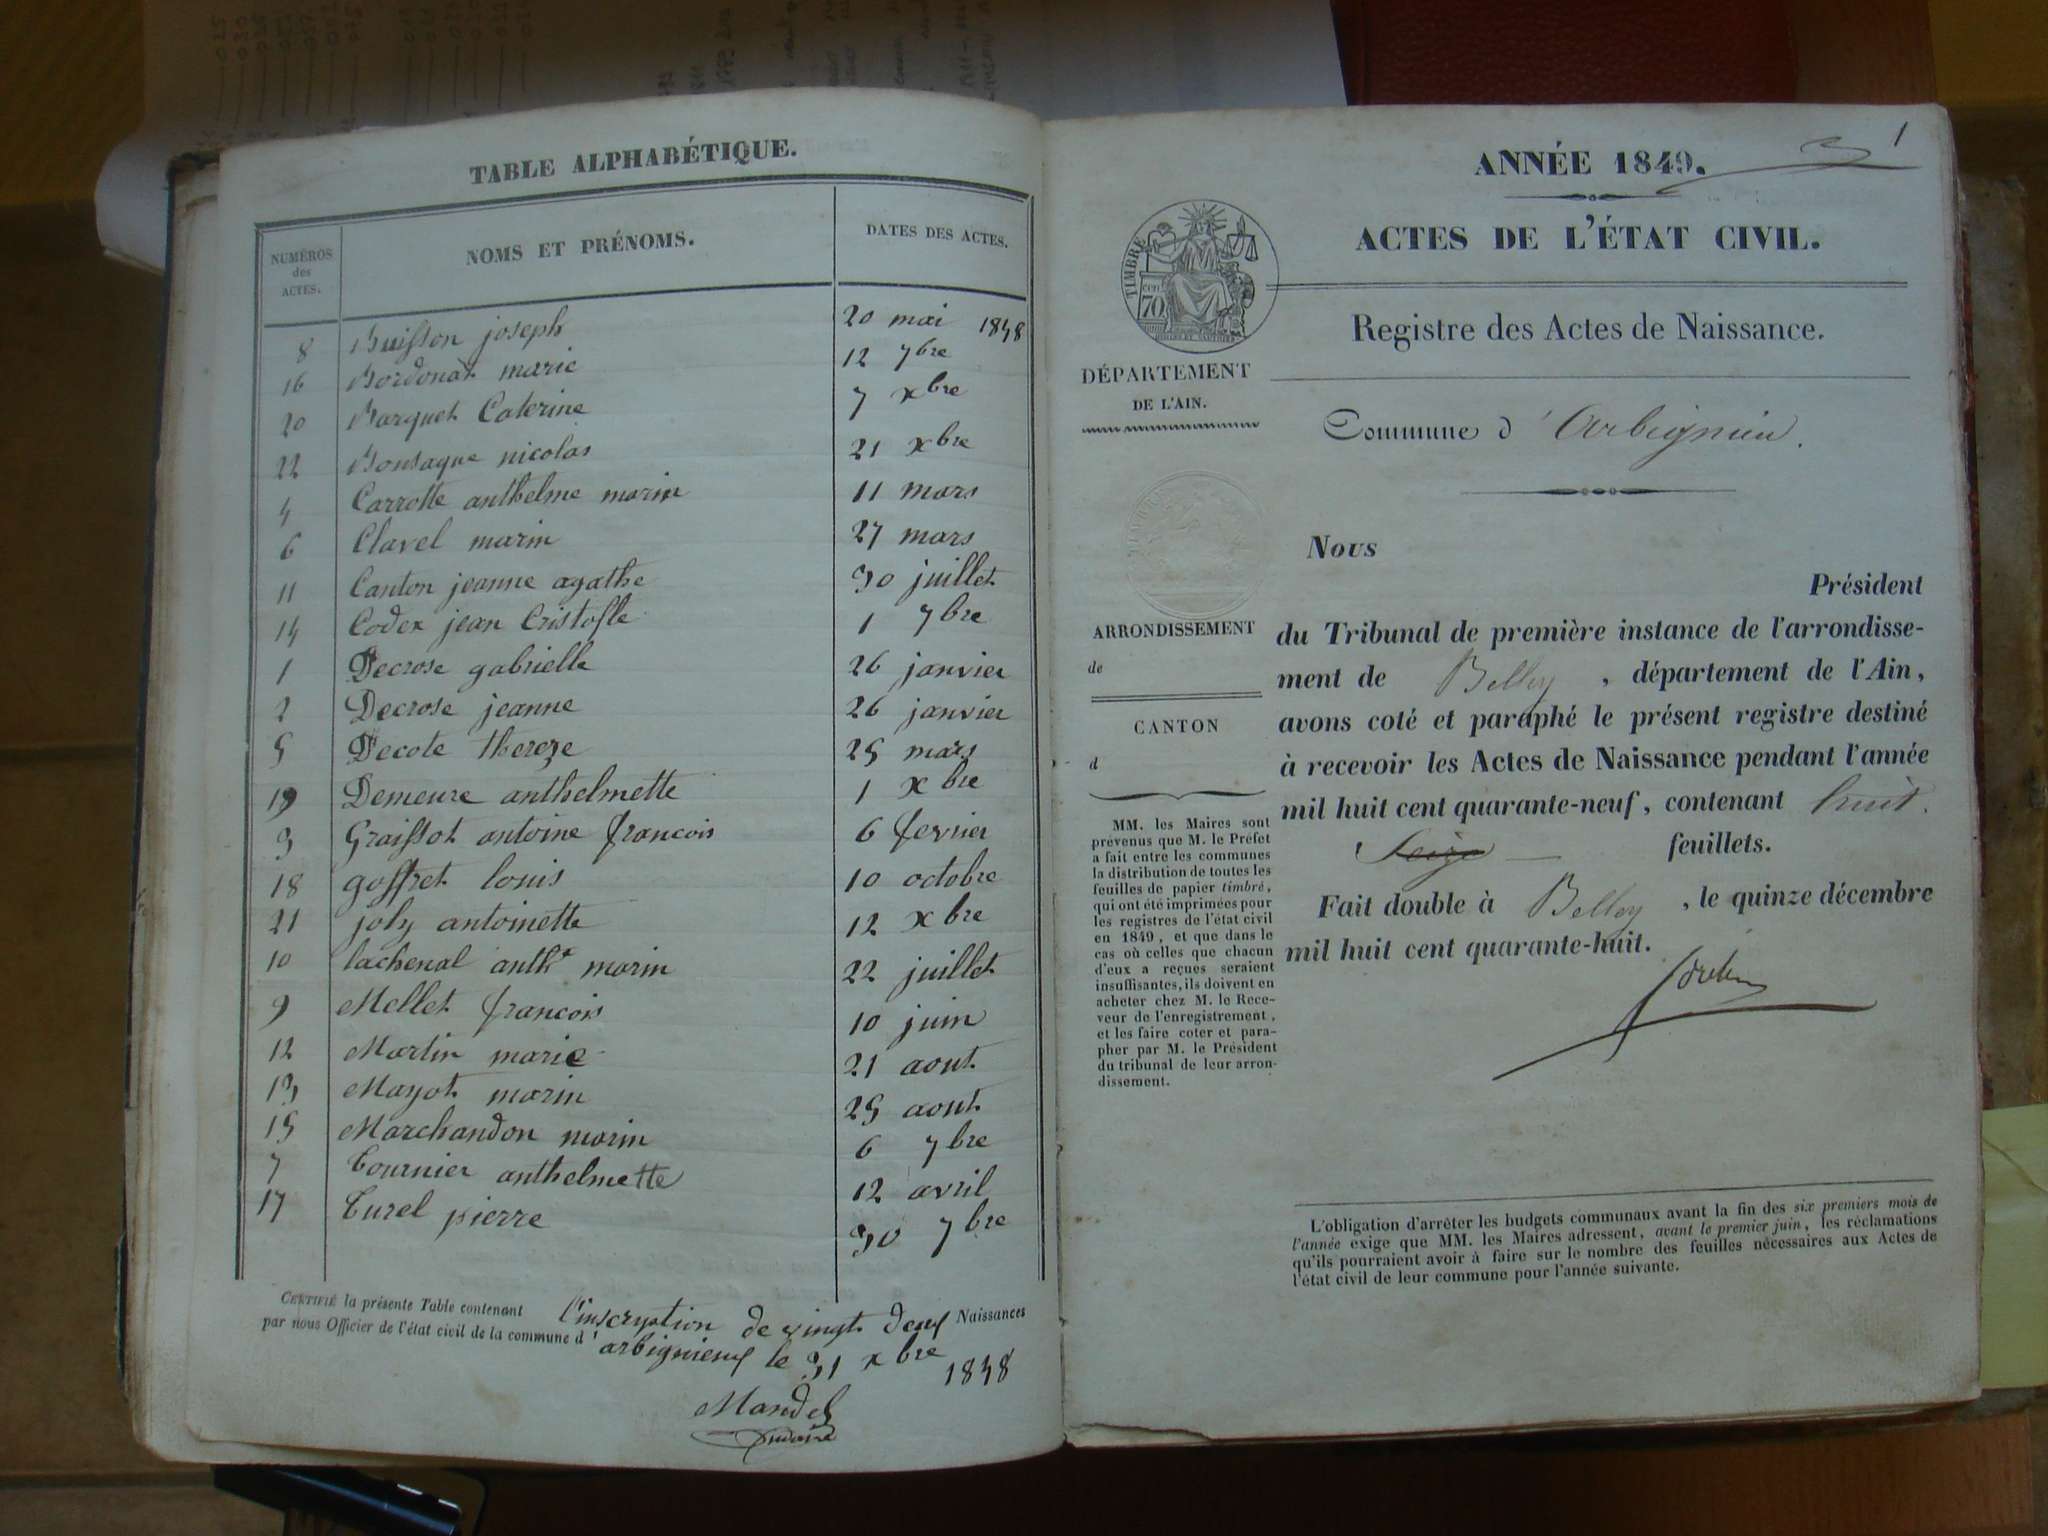 TABLE ALPHABÉTIQUE.
NUMÉROS des ACTES. NOMS ET PRÉNOMS. DATES DES ACTES.
8 Buisson joseph 20 mai 1848
16 Bordonat marie 12 7bre
20 Barquet Caterine 7 xbre
22 Bonsaque nicolas 21 xbre
4 Carrotte anthelme marin 11 mars
6 Clavel marin 27 mars
11 Canton jeanne agathe 30 juillet
14 Codex jean Cristofle 1 7bre
1 Decrose gabrielle 26 janvier
2 Decrose jeanne 26 janvier
5 Decote thereze 25 mars
19 Demeure anthelmette 1 xbre
3 Graissot antoine francois 6 fevrier
18 goffret louis 10 octobre
21 joly antoinette 12 xbre
10 lachenal anthe marin 22 juillet
9 Mellet francois 10 juin
12 Martin marie 21 aout
13 Mayot marin 25 aout
15 Marchandon marin 6 7bre
7 Tournier anthelmette 12 avril
17 Turel pierre 30 7bre
CERTIFIÉ la présente Table contenant l'inscryption de vingt deux Naissances
par nous Officier de l'état civil de la commune d'arbignieux le 31 xbre 1848
Mandel
1
ANNÉE 1849.
ACTES DE L'ÉTAT CIVIL.
TIMBRE
cen 70
Registre des Actes de Naissance.
DÉPARTEMENT
DE L'AIN.
Commune d'Arbignieu.
Nous
Président
ARRONDISSEMENT
de
CANTON
d
du Tribunal de première instance de l'arrondisse-
ment de Belley, département de l'Ain,
avons coté et paraphé le présent registre destiné
à recevoir les Actes de Naissance pendant l'année
mil huit cent quarante-neuf, contenant huit.
Seize feuillets.
Fait double à Belley, le quinze décembre
mil huit cent quarante-huit.
MM. les Maires sont
prévenus que M. le Préfet
a fait entre les communes
la distribution de toutes les
feuilles de papier timbré,
qui ont été imprimées pour
les registres de l'état civil
en 1849, et que dans le
cas où celles que chacun
d'eux a reçues seraient
insuffisantes, ils doivent en
acheter chez M. le Rece-
veur de l'enregistrement,
et les faire coter et para-
pher par M. le Président
du tribunal de leur arron-
dissement.
L'obligation d'arrêter les budgets communaux avant la fin des six premiers mois de
l'année exige que MM. les Maires adressent, avant le premier juin, les réclamations
qu'ils pourraient avoir à faire sur le nombre des feuilles nécessaires aux Actes de
l'état civil de leur commune pour l'année suivante.